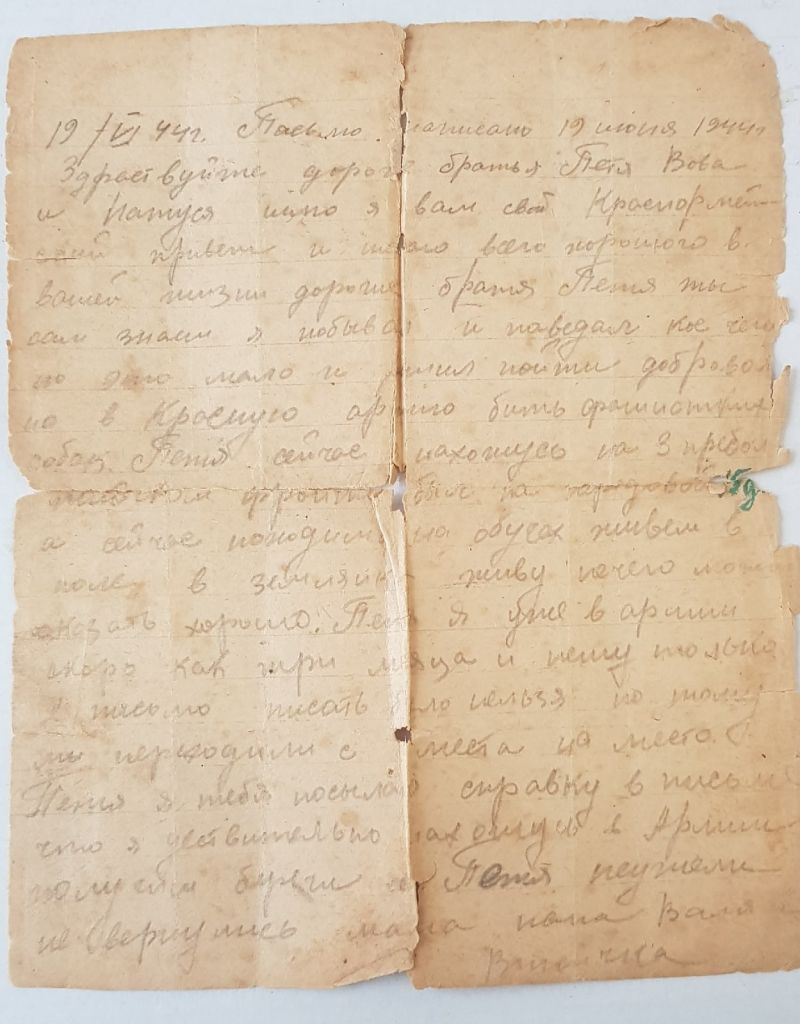 19/VI 44г. Письмо написано 19 июня 1944г
Здраствуйте дороге братья Петя Вова
и Натуся я вам свой Красноармей
ский привет и всего хорошого в
вашей жизни дорогие братя Петя ты
сам знаеш я побывал и поведал кое чего
но это мало и пойти доброволь
но в Красную армию бить фашистких
собак. Петя сейчас нахожусь на 3 прибал
тиском фронте был на 
а сейчас находимся на живем в
поле в землянке живу нечего можно
сказать хорошо. Петя я уже в армии
скоро как три месяца и пешу только
письмо писать было нельзя по тому
мы переходили с места на место.
Петя я тебя посылаю справку в письме
что я действительно нахожусь в Армии
получеш береги ее Петя неужели
не вернулись мама папа Валя и